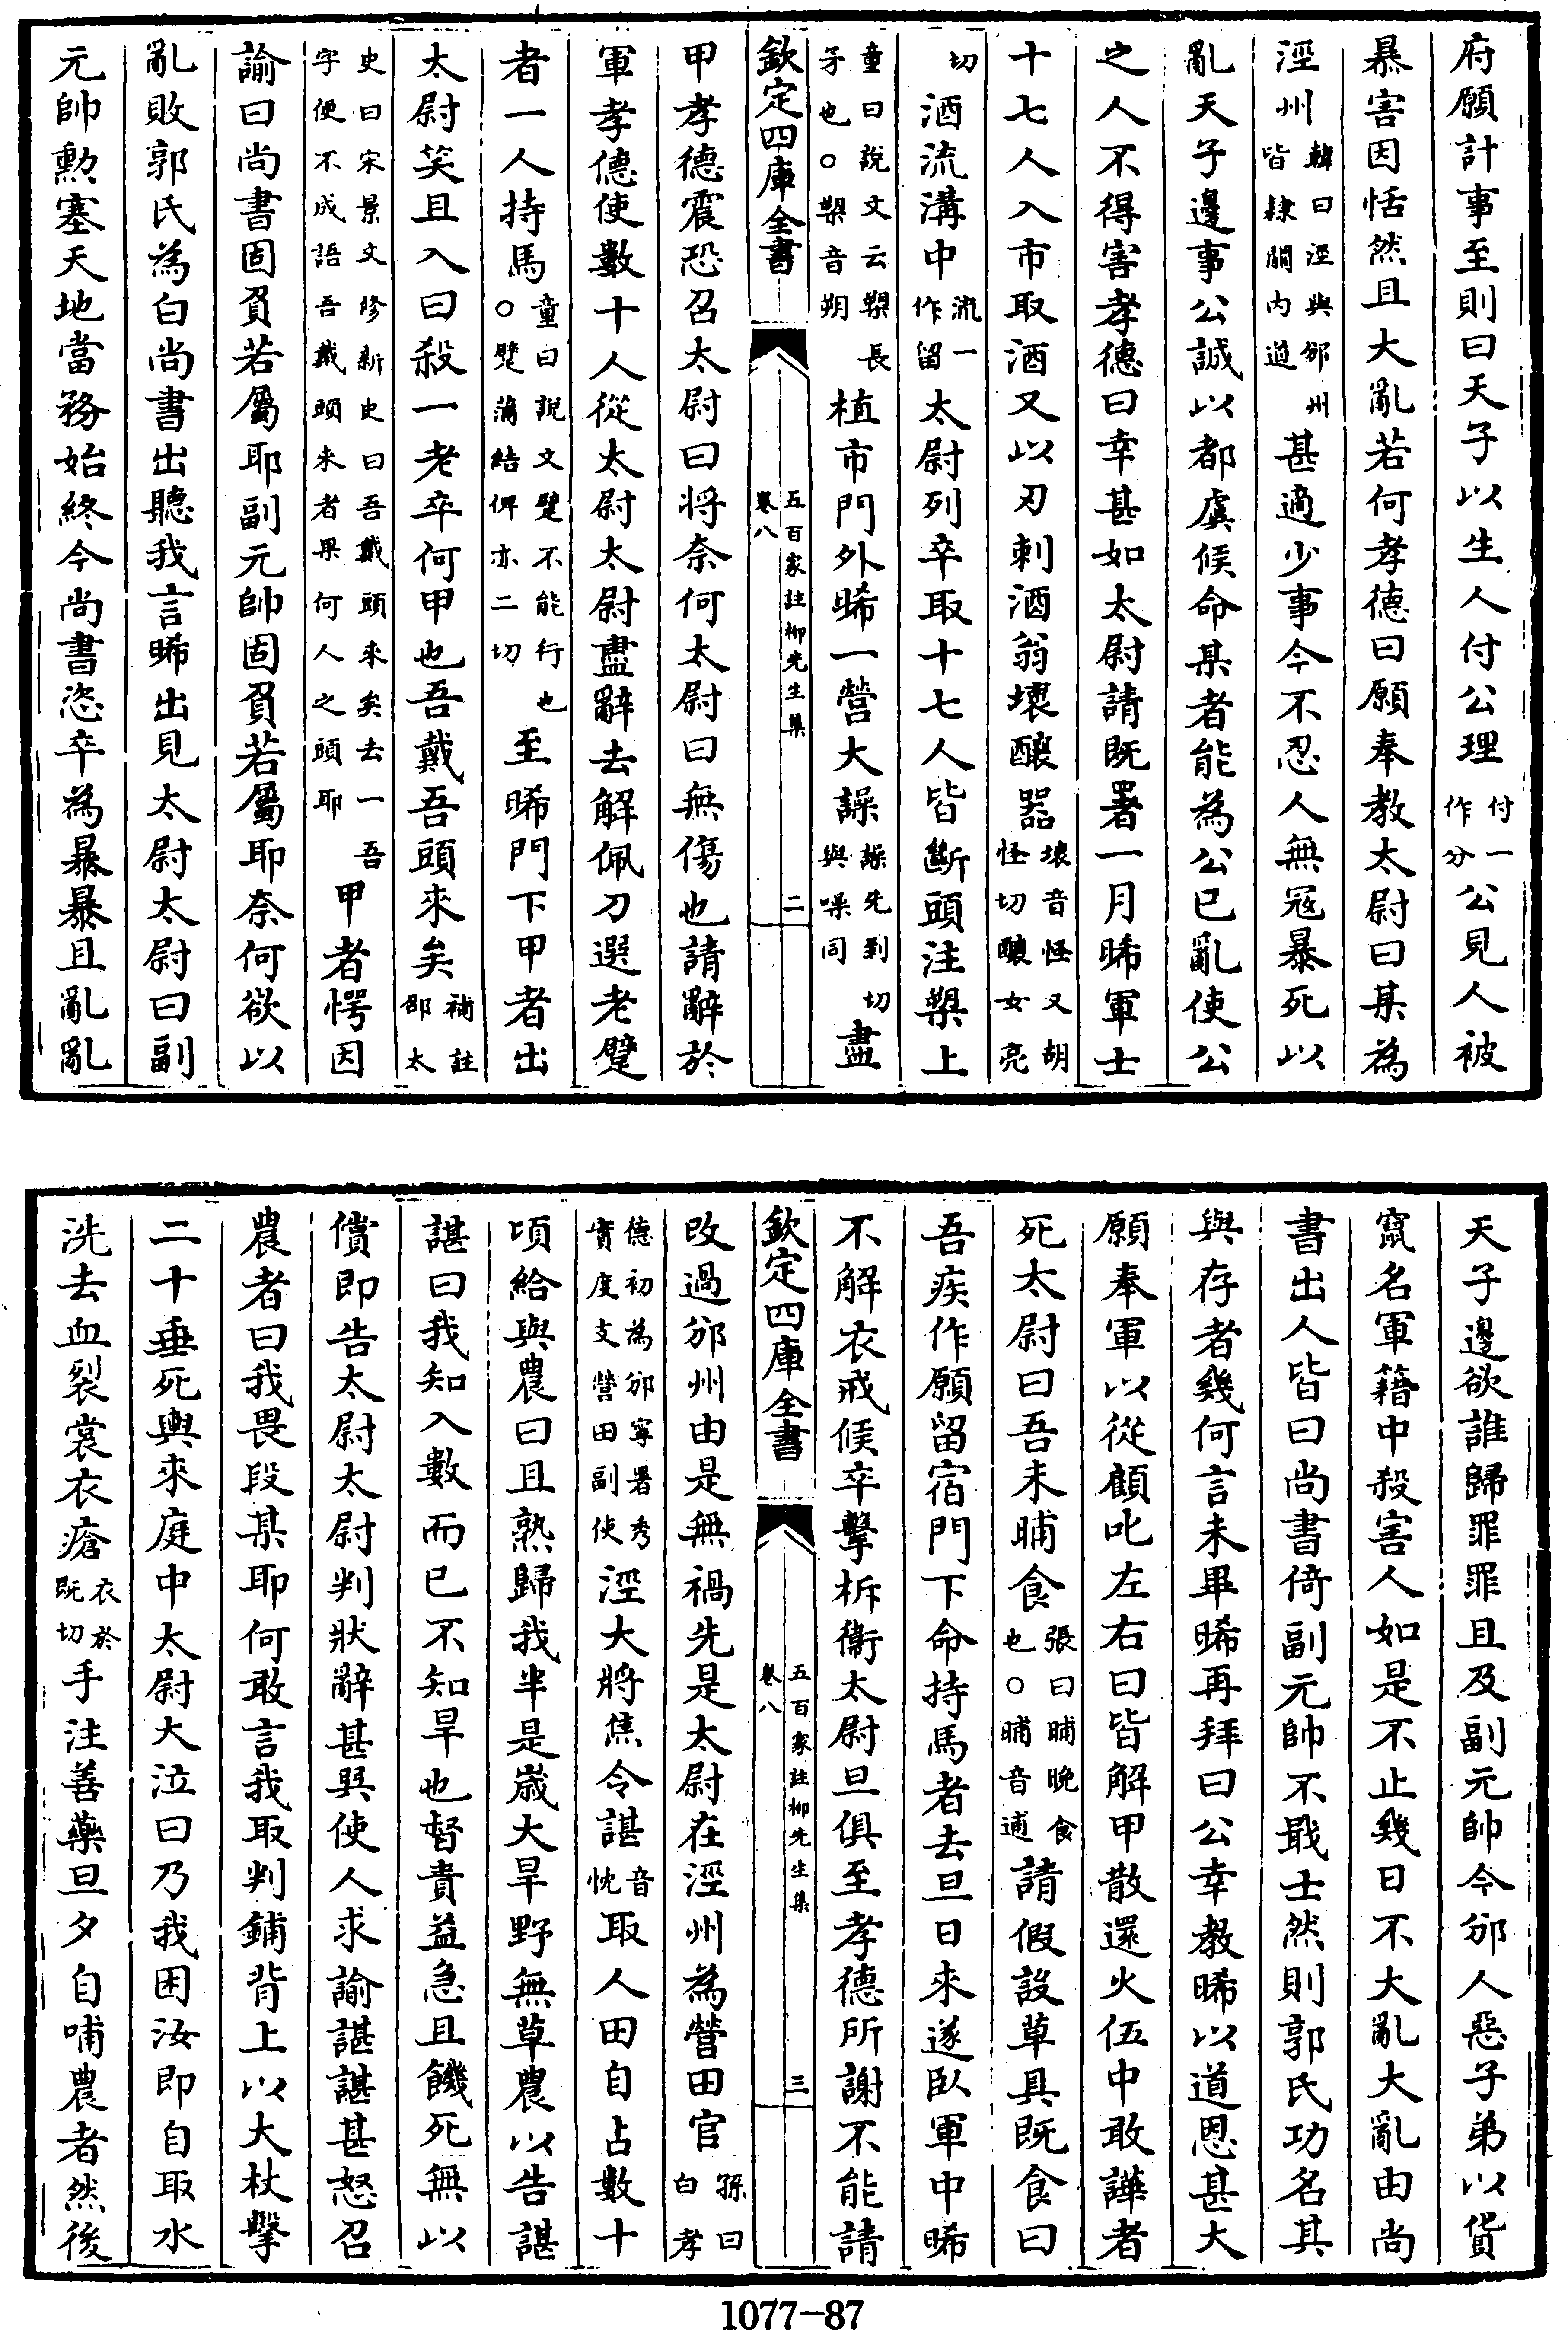 府願計事至則曰天子以生人付公理付一作分公見人被
暴害因恬然且大亂若何孝德曰願奉教太尉曰某為
涇州韓曰涇與邠州皆隸關內道甚適少事今不忍人無冦暴死以
亂天子邊事公誠以都虞候命某者能為公已亂使公
之人不得害孝德曰幸甚如太尉請既署一月晞軍士
十七人入市取酒又以刃刺酒翁壞釀器壞音怪又胡怪切釀女亮
切酒流溝中流一作留太尉列卒取十七人皆斷頭注槊上
童曰說文云槊長子也○槊音朔植市門外晞一營大譟譟先到切與噪同盡
欽定四庫全書
五百家註柳先生集
卷八
二
甲孝德震恐召太尉曰將奈何太尉曰無傷也請辭於
軍孝德使數十人從太尉太尉盡辭去解佩刀選老躄
者一人持馬童曰說文躄不能行也○躄蒲結俾亦二切至晞門下甲者出
太尉笑且入曰殺一老卒何甲也吾戴吾頭來矣補註邵太
史曰宋景文修新史曰吾戴頭來矣去一吾字便不成語吾戴頭來者果何人之頭耶甲者愕因
諭曰尚書固負若屬耶副元帥固負若屬耶奈何欲以
亂敗郭氏為白尚書出聽我言晞出見太尉太尉曰副
元帥勲塞天地當務始終今尚書恣卒為暴暴且亂亂
天子邊欲誰歸罪罪且及副元帥今邠人惡子弟以貨
竄名軍籍中殺害人如是不止幾日不大亂大亂由尚
書出人皆曰尚書倚副元帥不戢士然則郭氏功名其
與存者幾何言未畢晞再拜曰公幸教晞以道恩甚大
願奉軍以從顧叱左右曰皆解甲散還火伍中敢譁者
死太尉曰吾未晡食張曰晡晚食也○晡音逋請假設草具既食曰
吾疾作願留宿門下命持馬者去旦日來遂臥軍中晞
不解衣戒候卒擊柝衞太尉旦俱至孝德所謝不能請
欽定四庫全書
五百家註柳先生集
卷八
三
改過邠州由是無禍先是太尉在涇州為營田官孫曰白孝
德初為邠寧署秀實度支營田副使涇大將焦令諶音忱取人田自占數十
頃給與農曰且熟歸我半是嵗大旱野無草農以告諶
諶曰我知入數而已不知旱也督責益急且饑死無以
償即告太尉太尉判狀辭甚巽使人求諭諶諶甚怒召
農者曰我畏段某耶何敢言我取判鋪背上以大杖擊
二十垂死輿來庭中太尉大泣曰乃我困汝即自取水
洗去血裂裳衣瘡衣於既切手注善藥旦夕自哺農者然後
1077-87